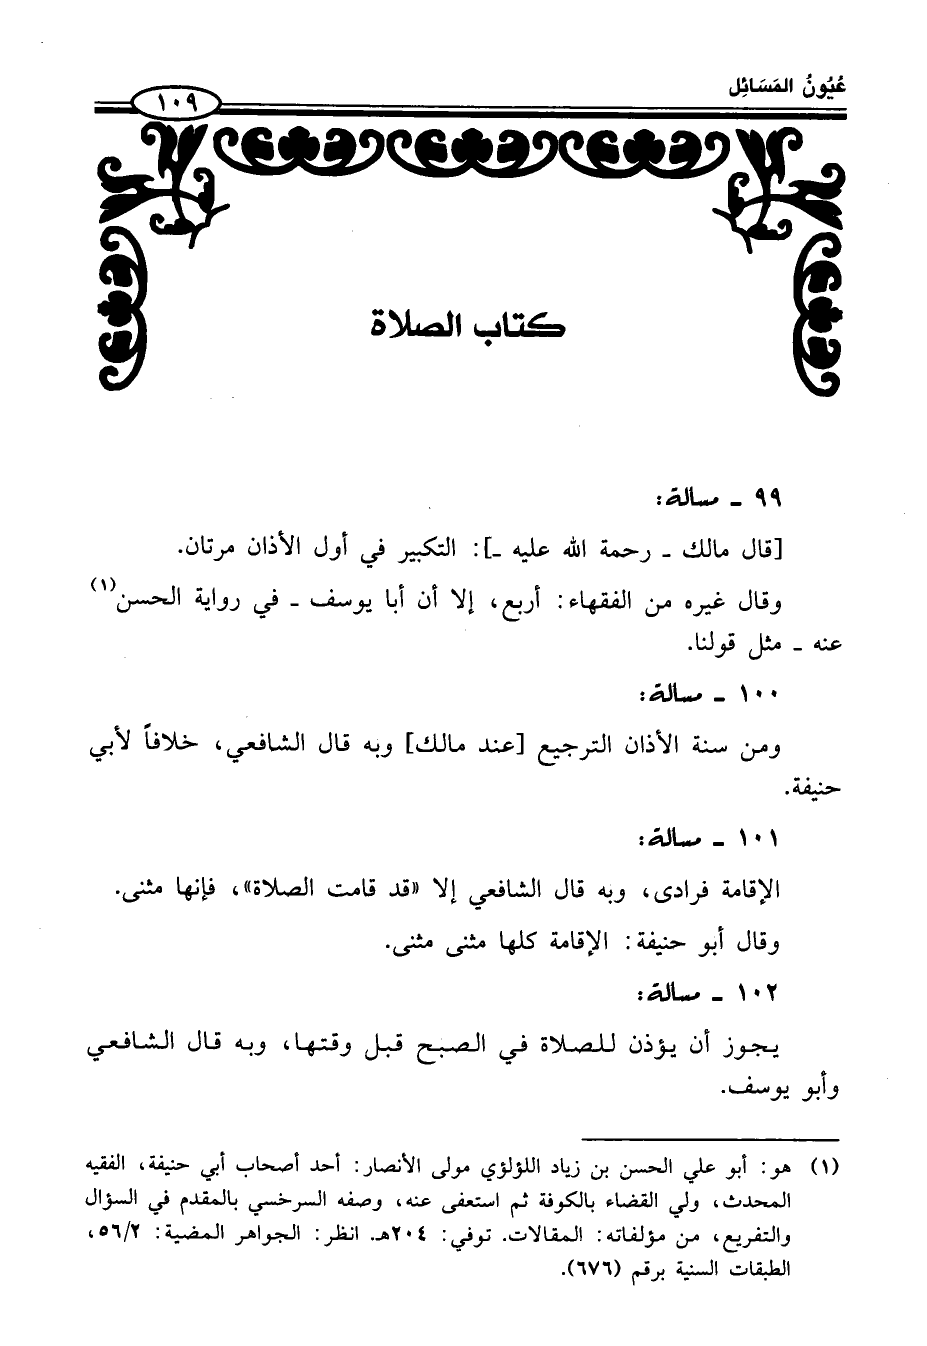 عُيُونُ المَسَائِل
١٠٩
كتاب الصلاة
٩٩ ـ مسالة:
[قال مالك ـ رحمة الله عليه ـ]: التكبير في أول الأذان مرتان.
وقال غيره من الفقهاء: أربع، إلا أن أبا يوسف ـ في رواية الحسن(١)
عنه ـ مثل قولنا.
١٠٠ ـ مسالة:
ومن سنة الأذان الترجيع [عند مالك] وبه قال الشافعي، خلافاً لأبي
حنيفة.
١٠١ ـ مسالة:
الإقامة فرادى، وبه قال الشافعي إلا «قد قامت الصلاة»، فإنها مثنى.
وقال أبو حنيفة: الإقامة كلها مثنى مثنى.
١٠٢ ـ مسالة:
يجوز أن يؤذن للصلاة في الصبح قبل وقتها، وبه قال الشافعي
وأبو يوسف.
(١) هو: أبو علي الحسن بن زياد اللؤلؤي مولى الأنصار: أحد أصحاب أبي حنيفة، الفقيه
المحدث، ولي القضاء بالكوفة ثم استعفى عنه، وصفه السرخسي بالمقدم في السؤال
والتفريع، من مؤلفاته: المقالات. توفي: ٢٠٤هـ. انظر: الجواهر المضية: ٥٦/٢،
الطبقات السنية برقم (٦٧٦).